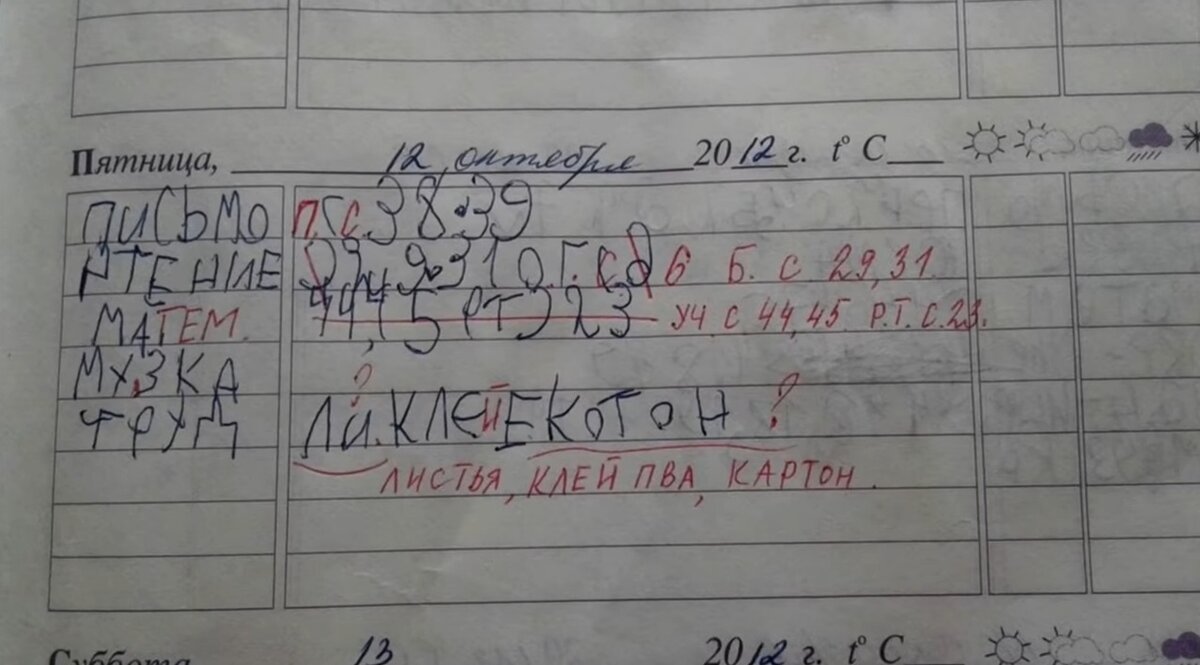 Пятница, 12, октября 2012 г. t° C
ПИСЬМО П. С. 38.39
ЧТЕНИЕ б Б. С 29,31
МАТЕМ. 44,45 РТЭ 23 УЧ С 44,45 Р.Т. С.23.
МУЗКА ?
ТРУД ЛИ.КЛЕЙЕКОТОН ?
ЛИСТЬЯ, КЛЕЙ ПВА, КАРТОН.
Суббота 13 2012 г. t° C